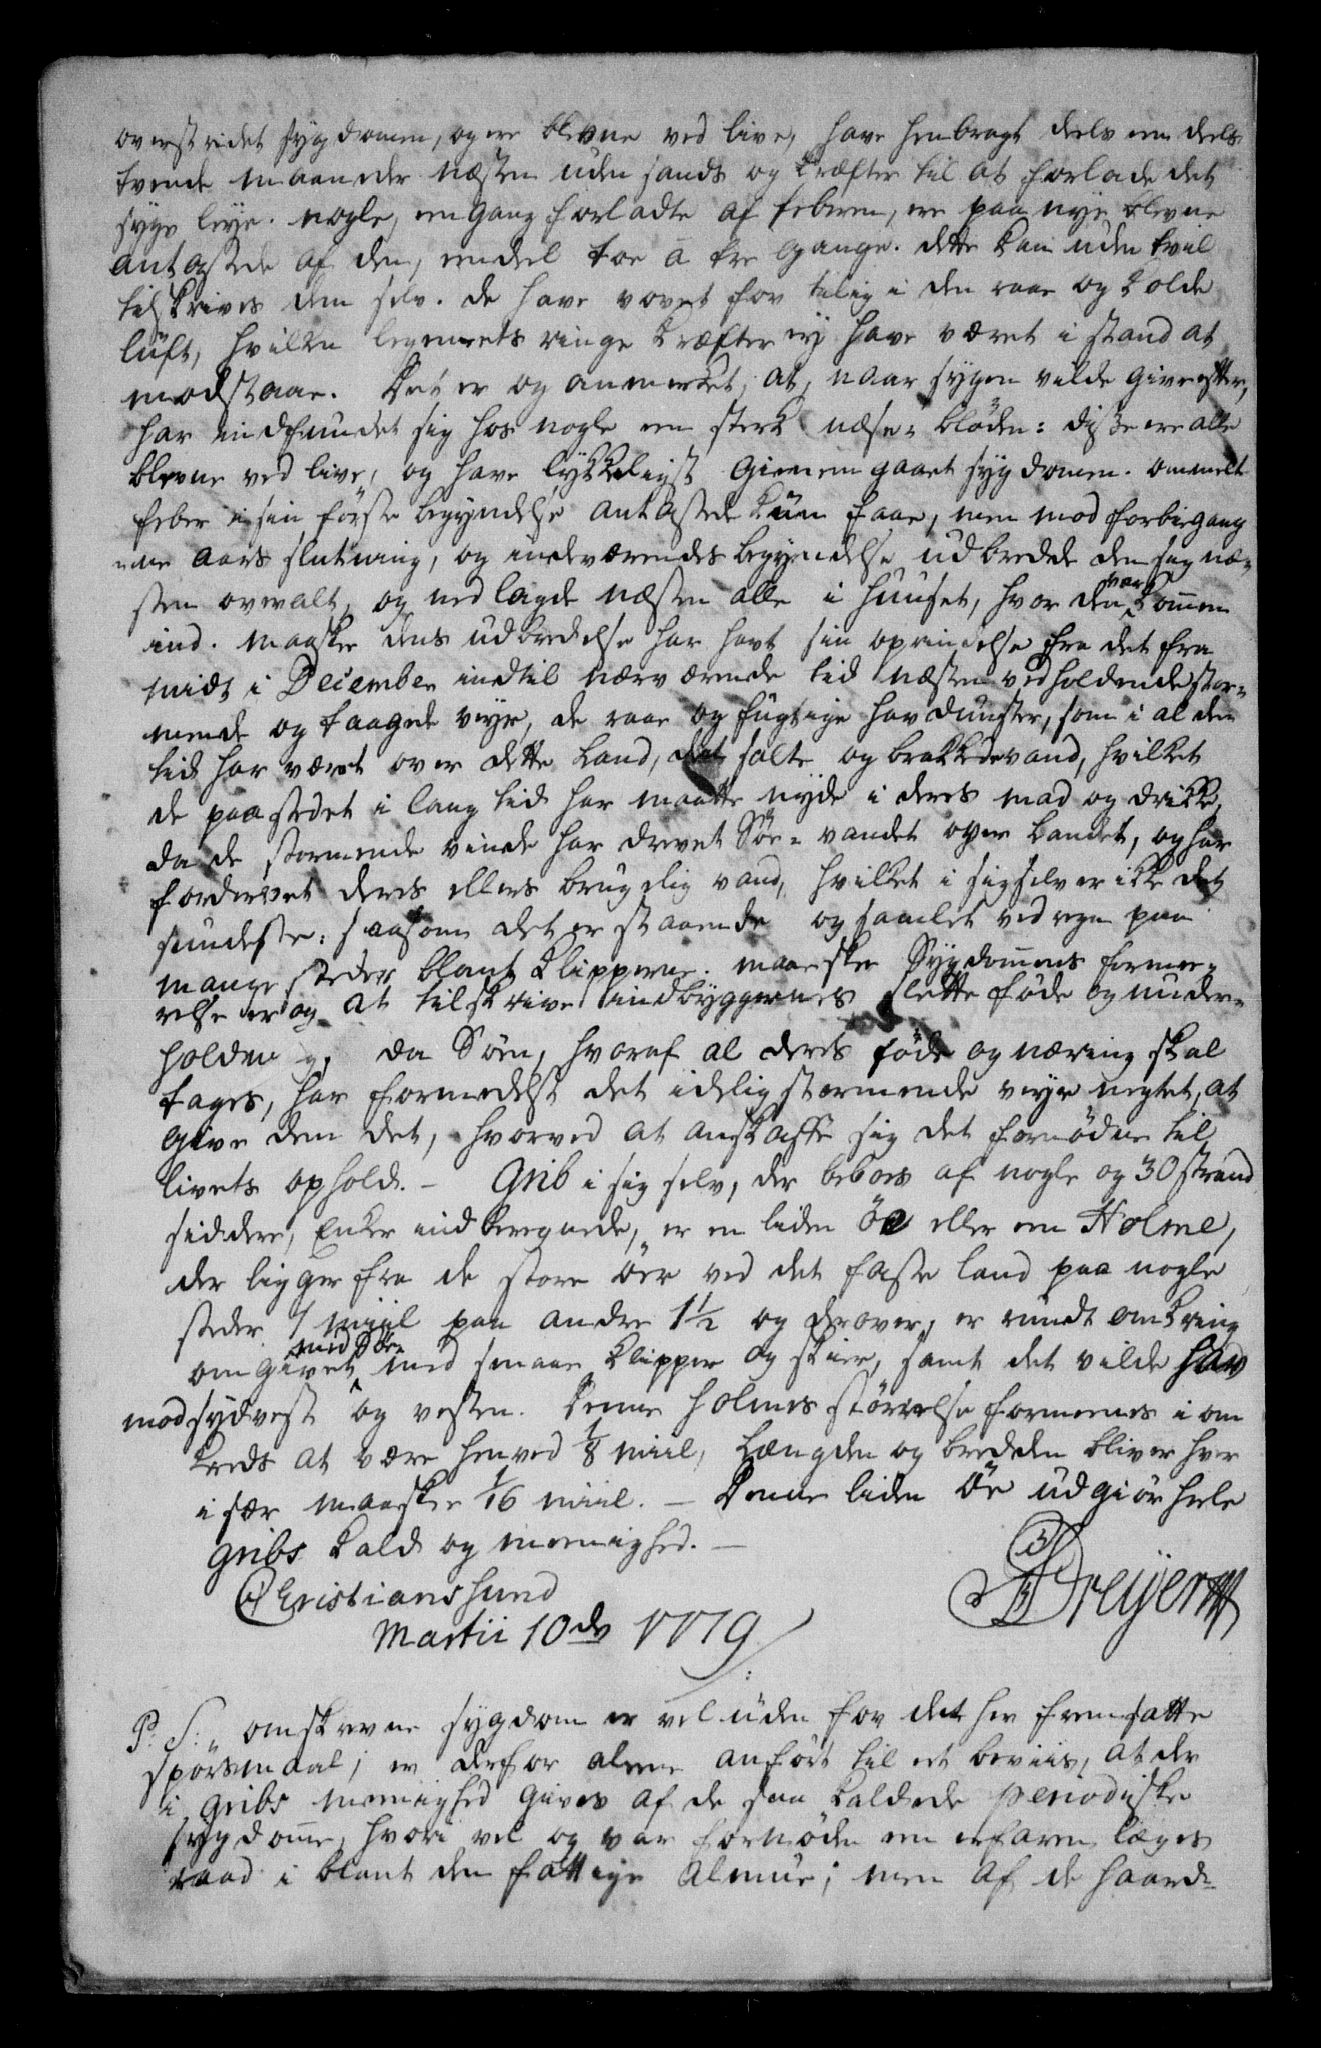 overstridet sygdomen, og ere blevne ved live, have henbragt deels en deels
tvende maaneder næsten uden sands og kræfter til at forlade det
syge leye. nogle, engang forladte af feberen, ere paa nye blevne
antastede af den, endeel toe à tre gange. dette kan uden tvil
tilskrives dem selv. de have vovet for tilig i den raae og kolde
lúft, hvilken legemets ringe kræfter ey have været i stand at
modstaae. Det er og anmerket, at, naar sygen vilde give efter,
har indfundet sig hos nogle en sterk næse-blöden: disse ere alle
blevne ved live, og have lykkeligst giennemgaaet sygdomen. ommelte
feber i sin förste begyndelse antastede kún faae, men mod forbigang
ene aars slutning, og indeværendes begyndelse udbredde den sig næ-
sten overalt, og nedlagde næsten alle i huuset, hvor den var kommen
ind. maaskee dens udbredelse har havt sin oprindelse fra det fra
midt i December indtil nærværende tid næsten vedholdende stor-
mende og taagede veyr, de raae og fúgtige havdúnster, som i al den
tid har været over dette Land, det salte og brakkede vand, hvilket
de paa stedet i lang tid har maatte nyde i deres mad og drikke,
da de stormende vinde har drevet Söe-vandet over Landet, og har
fordervet deres ellers brugelig vand, hvilket i sig selv er ikke det
sundeste: saasom det er staaende og samlet ved regn paa
mange steder blant klipperne. maaskee Sygdommens formee-
relse er og at tilskrive indbyggernes slette föde og under-
holdning, da Söen, hvoraf al deres föde og næring skal
tages, har formedelst det idelig stormende veyr negtet, at
give dem det, hvorved at anskaffe sig det fornödne til
livets ophold. - Grib i sig selv, der beboes af nogle og 30 strand
siddere, Enker indberegnede, er en liden öe eller en Holme,
der ligger fra de store öer ved det faste land paa nogle
steder 1 miil paa andre 1½ og derover, er rundt omkring
omgivet med Söe med smaae klipper og skier, samt det vilde hav
mod sydvest og vesten. Denne holmes störrelse formeenes i om
kreds at være henved 1/8 miil, Længden og bredden bliver hver
i sær maaskee 1/16 miil. - Denne liden öe udgiör heele
Gribs kald og meenighed. -
Christianshund
Martii 10de 1779
Dreyer
P. S. omskrevne sygdom er vel uden for det her fremsatte
spörsmaal; er derfor alene anfört til et beviis, at der
i Gribs meenighed gives af de saa kaldede periodiske
sygdomme, hvori vel og var fornöden en erfaren læges
raad i blant den fattige almue; men af de haard-